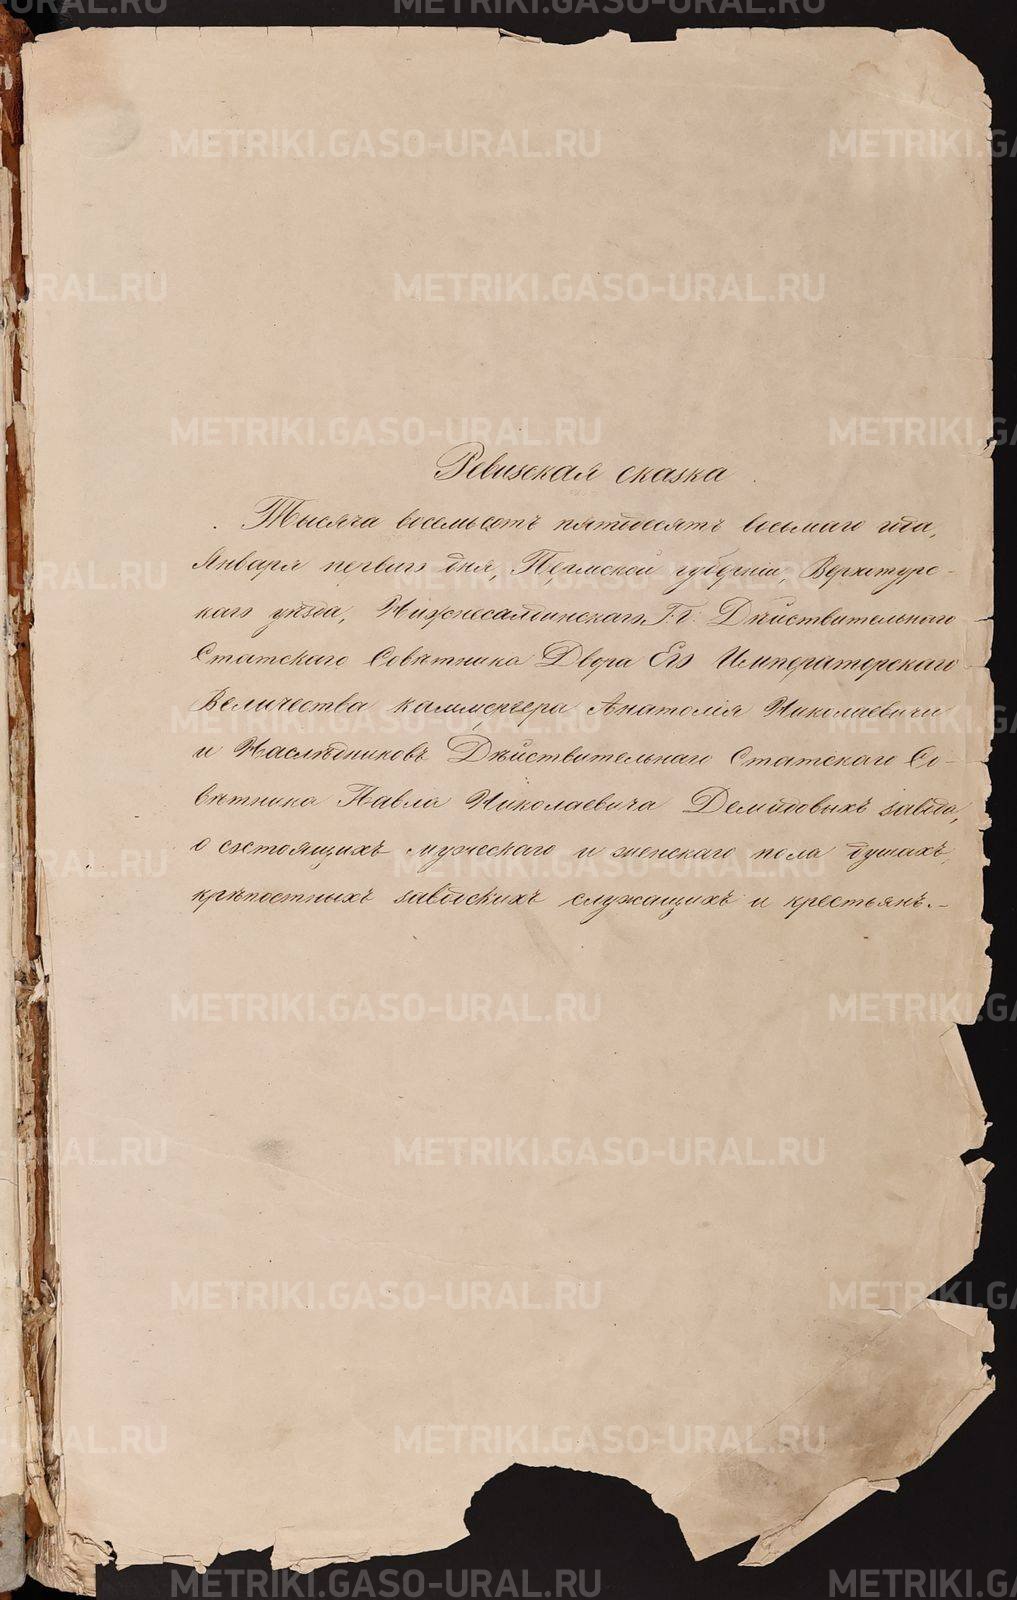 Ревизская сказка
Тысяча восемьсотъ пятдесятъ восьмаго года,
Января перваго дня, Пермской губерніи, Верхотурс-
каго уѣзда, Нижнесалдинскаго, Г.г. Дѣйствительнаго
Статскаго Совѣтника Двора Его Императорскаго
Величества каммергера Анатолія Николаевича
и Наслѣдниковъ Дѣйствительнаго Статскаго Со-
вѣтника Павла Николаевича Демидовыхъ завода,
о состоящихъ мужескаго и женскаго пола душахъ,
крѣпостныхъ заводскихъ служащихъ и крестьянъ.-
METRIKI.GASO-URAL.RU